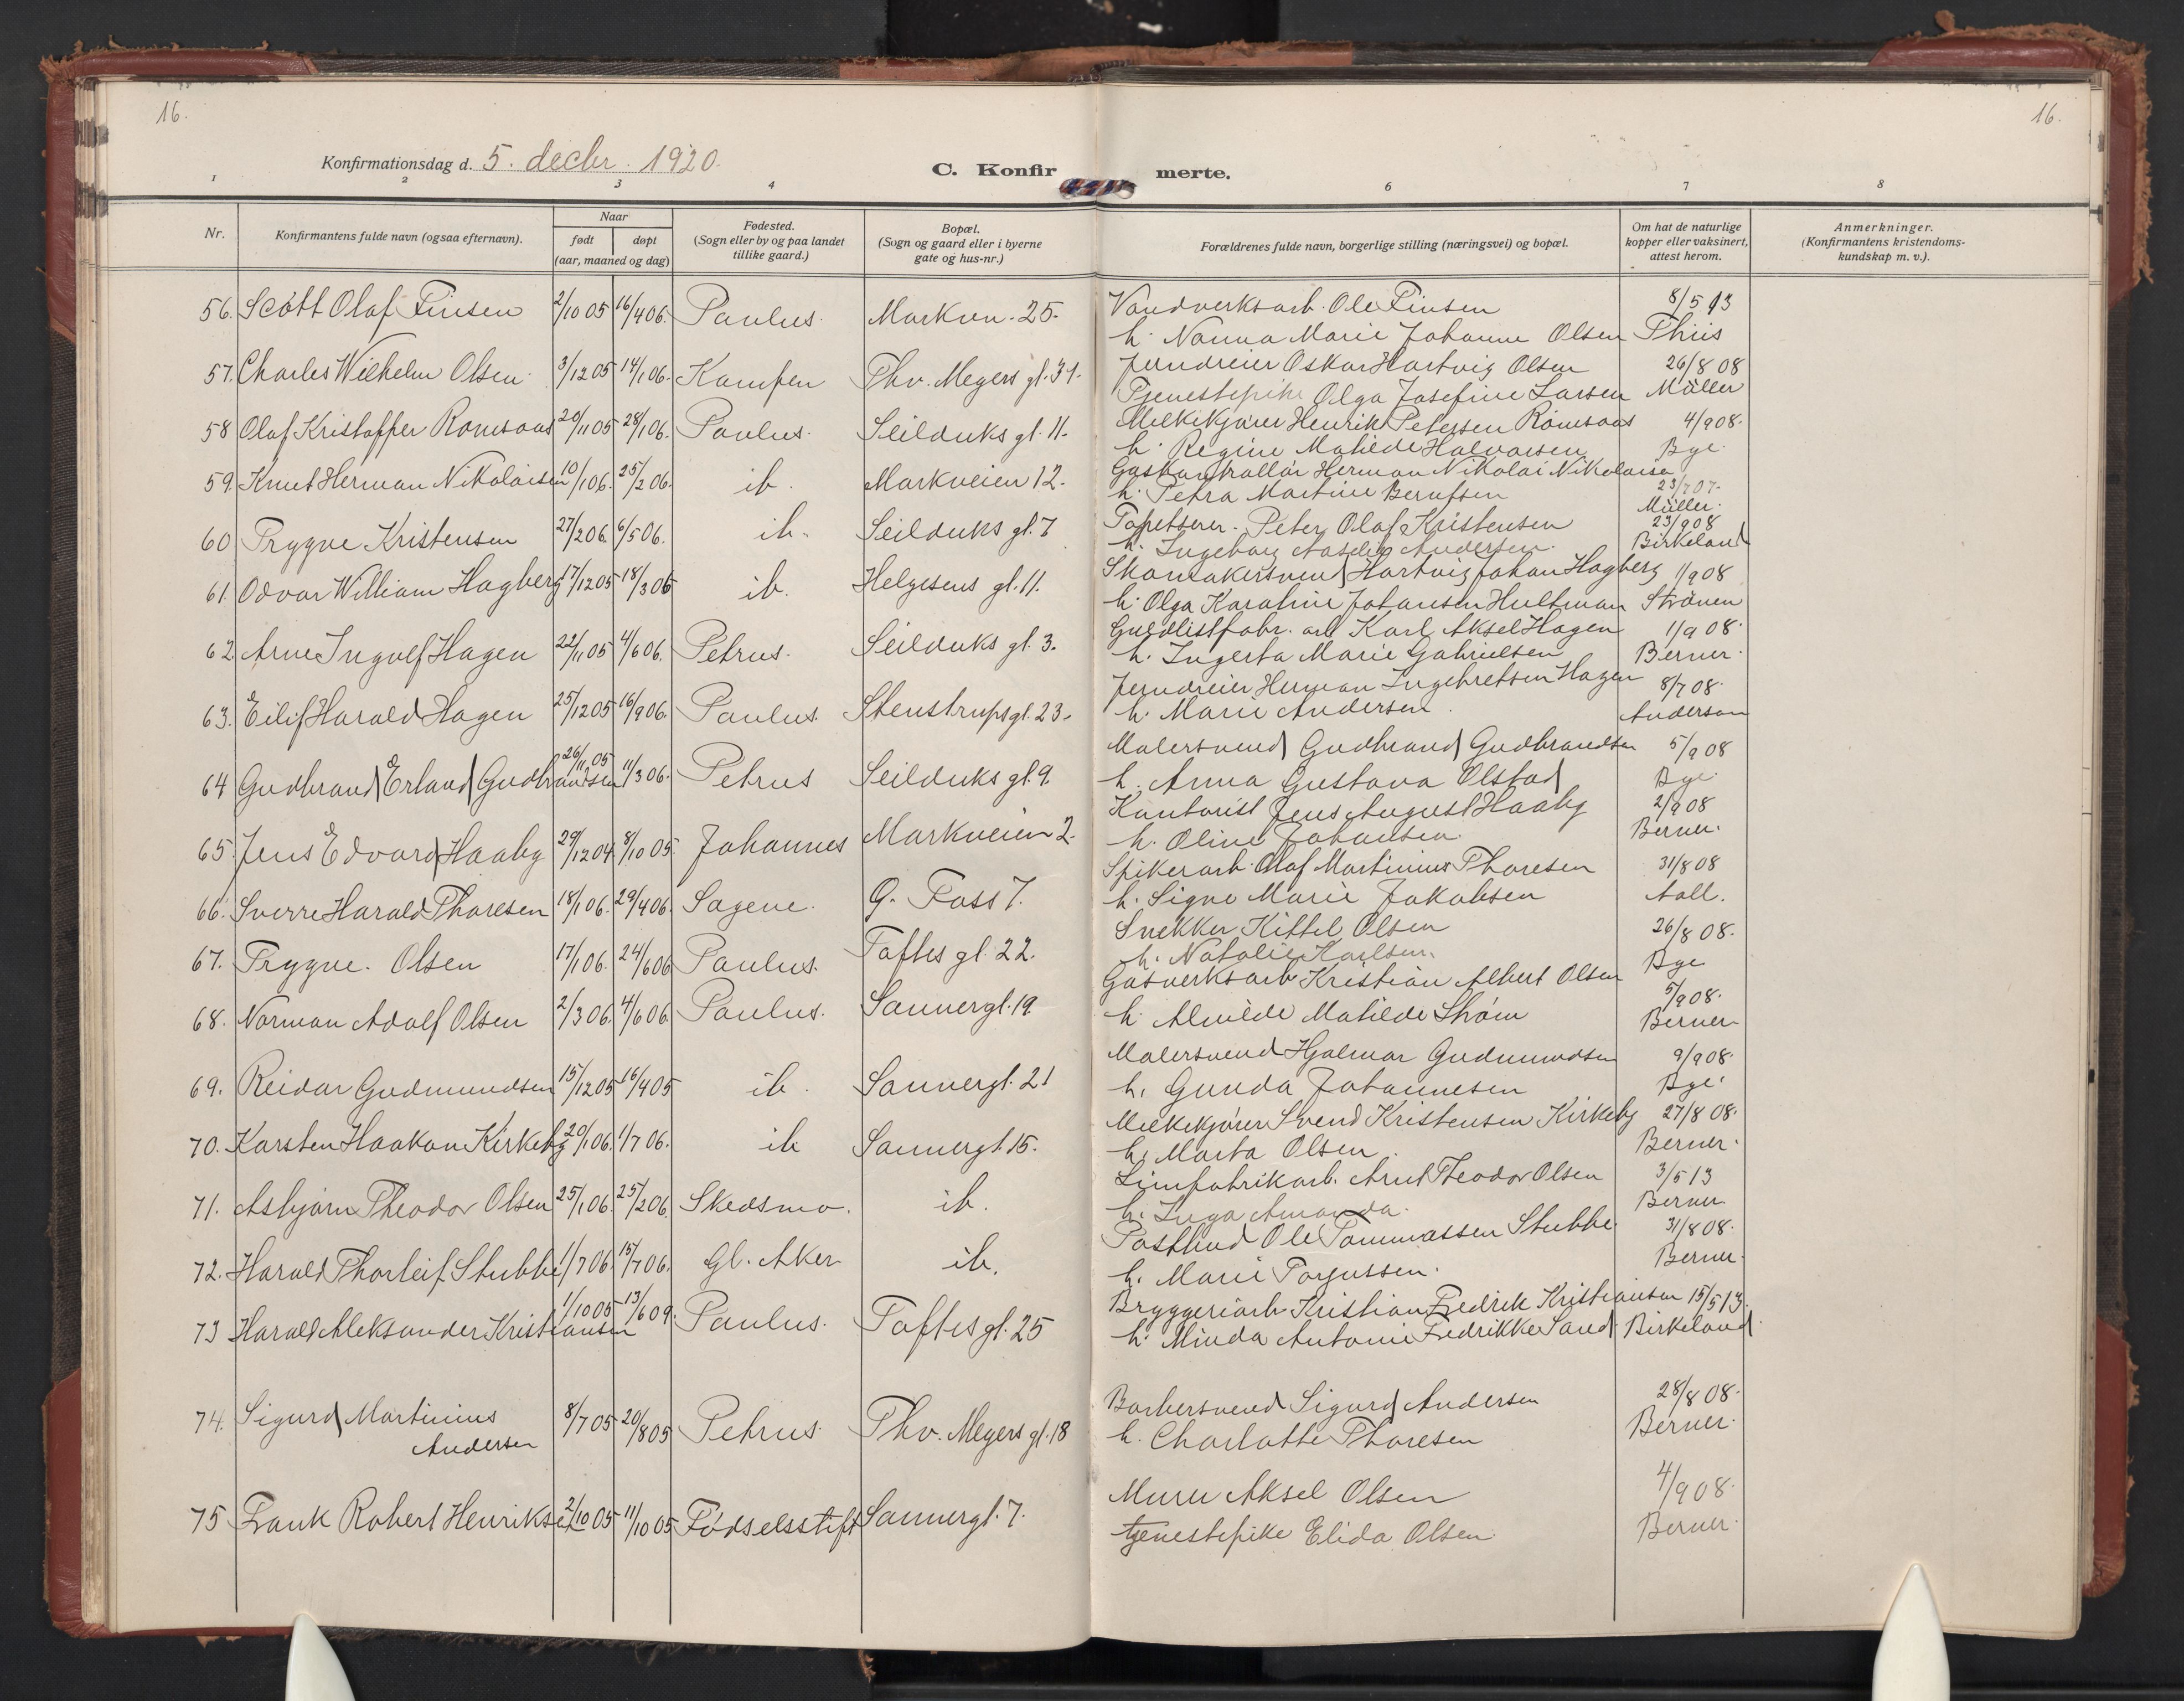 16.
16.
Konfirmationsdag d. 5. decbr. 1920.
C. Konfir merte.
1 2 3 4 6 7 8
Nr.
Konfirmantens fulde navn (ogsaa efternavn).
Naar
født døpt
(aar, maaned og dag)
Fødested.
(Sogn eller by og paa landet
tillike gaard.)
Bopæl.
(Sogn og gaard eller i byerne
gate og hus-nr.)
Forældrenes fulde navn, borgerlige stilling (næringsvei) og bopæl.
Om hat de naturlige
kopper eller vaksinert,
attest herom.
Anmerkninger.
(Konfirmantens kristendoms-
kundskap m. v.).
56. Scott Olaf Finsen 2/10 05 16/4 06. Paulus. Markvn. 25. Vandverksarb. Ole Finsen 8/5 13
h. Nanna Marie Johanne Olsen Thiis
57. Charles Wilhelm Olsen 3/12 05 14/1 06. Kampen Thv. Meyers gt. 31. Jerndreier Oskar Hartvig Olsen 26/8 08
Tjenestepike Olga Josefine Larsen Müller
58 Olaf Kristoffer Romsaas 20/11 05 28/1 06. Paulus. Seilduks gt. 11. Melkekjører Henrik Petersen Romsaas 4/9 08.
h. Regine Matilde Halvorsen Bye.
59. Knut Herman Nikolaisen 10/1 06. 25/2 06. ib. Markveien 12. Gaskontrollør Herman Nikolai Nikolaisen 23/7 07.
h. Petra Martine Berntsen Müller.
60 Trygve Kristensen 27/2 06. 6/5 06. ib. Seilduks gt. 7 Tapetserer. Peter Olaf Kristensen 23/9 08
h. Ingeborg Aaselie Andersen. Birkeland
61. Odvar William Hagberg 17/12 05 18/3 06 ib. Helgesens gt. 11. Skomakersvend Hartvig Johan Hagberg 1/9 08
h. Olga Karoline Johansen Hultman Strömen
62. Arne Ingolf Hagen 22/11 05 4/6 06. Petrus. Seilduks gt. 3. Guldlistfabr. arb Karl Aksel Hagen 1/9 08.
h. Ingerta Marie Gabrielsen Berner.
63. Eilif Harald Hagen 25/12 05 16/9 06. Paulus. Stenstrups gt. 23. Jerndreier Herman Ingebretsen Hagen 8/7 08.
h. Marie Andersen. Anderson
64 Gudbrand Erland Gudbrandsen 26/11 05 11/3 06. Petrus Seilduks gt. 9. Malersvend Gudbrand Gudbrandsen 5/9 08
h. Anna Gustava Olstad Bye.
65. Jens Edvard Haaby 29/12 04. 8/10 05. Johannes Markveien 2. Kontorist Jens August Haaby 2/9 08
h. Oline Johansen. Berner.
66. Sverre Harald Thoresen 18/1 06. 29/4 06. Sagene. G. Foss 7. Spikerarb. Olaf Martinius Thoresen 31/8 08
h. Signe Marie Jakobsen Aall.
67. Trygve. Olsen 17/1 06. 24/6 06 Paulus. Toftes gt. 22. Snekker Kittel Olsen 26/8 08.
h. Natalie Karlsen. Bye
68. Norman Adolf Olsen 2/3 06. 4/6 06. Paulus. Sannergt. 19. Gasverksarb Kristian Albert Olsen 5/9 08.
h. Alvilde Matilde Strøm Berner
69. Reidar Gudmundsen 15/12 05 16/4 05 ib. Sannergt. 21 Malersvend Hjalmar Gudmundsen 9/9 08.
h. Gunda Johannesen Bye.
70. Karsten Haakon Kirkeby 20/1 06. 1/7 06. ib Sannergt. 15. Melkekjører Svend Kristensen Kirkeby 27/8 08.
h. Marta Olsen. Berner.
71. Asbjørn Theodor Olsen 25/1 06. 25/2 06. Skedsmo. ib. Limfabrikarb. Arnt Theodor Olsen 3/5 13
h. Inga Amanda. Berner
72. Harald Thorleif Stubbe 1/7 06. 15/7 06. Gl. Aker ib. Postbud Ole Tommassen Stubbe. 31/8 08.
h. Marie Torjussen. Berner.
73 Harald Aleksander Kristiansen 1/10 05 13/6 09. Paulus. Toftes gt. 25 Bryggeriarb Kristian Fredrik Kristiansen 15/5 13.
h. Minda Antonie Fredrikke Sand Birkeland.
74. Sigurd Martinius 8/7 05 20/8 05 Petrus. Thv. Meyers gt. 18 Barbersvend Sigurd Andersen 28/8 08.
Andersen h. Charlotte Thoresen Berner.
75 Frank Robert Henriksen 2/10 05 11/10 05 Fødselsstift Sannergt. 7. Murer Aksel Olsen 4/9 08.
tjenestepike Elida Olsen. Berner.